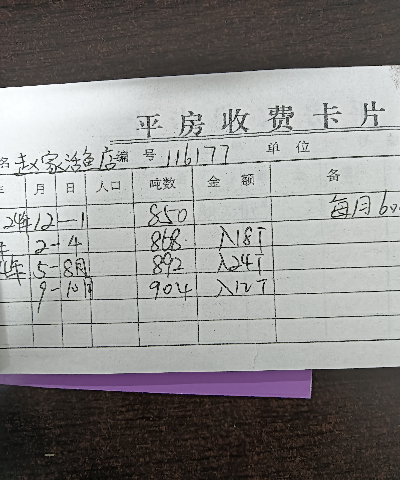 平房收费卡片
名 赵家活鱼店 编号 116177 单位
年 月 日 人口 吨数 金额 备
24年 12-1 850 每月6
年 2-4 868 入18T
4年 5-8月 892 入24T
9-10月 904 入12T